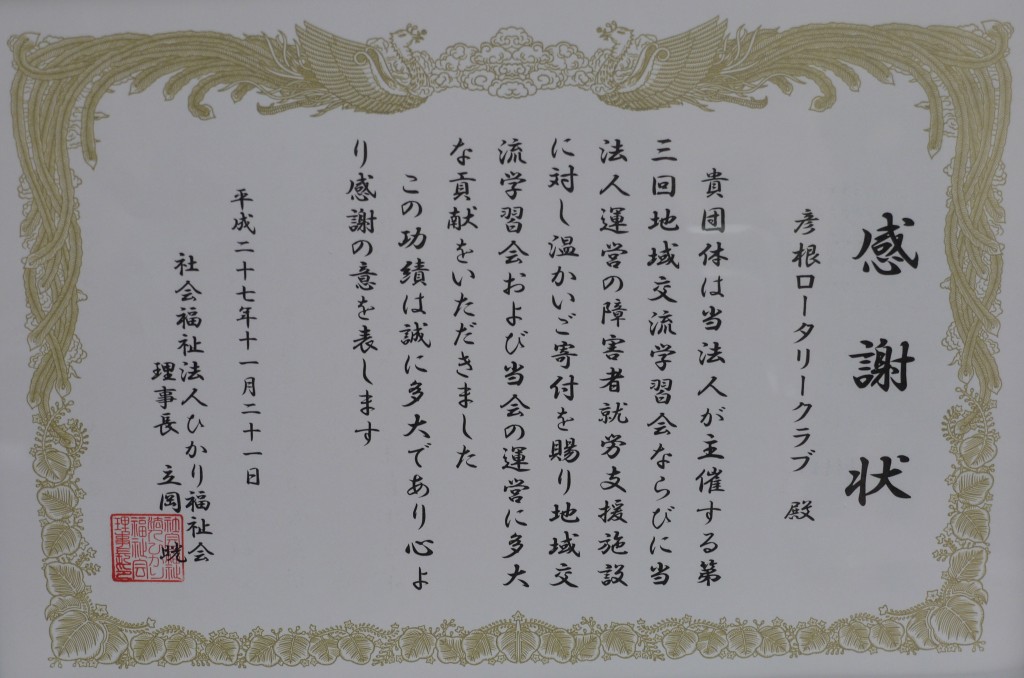 感謝状
彦根ロータリークラブ 殿
貴団体は当法人が主催する第
三回地域交流学習会ならびに当
法人運営の障害者就労支援施設
に対し温かいご寄付を賜り地域交
流学習会および当会の運営に多大
な貢献をいただきました
この功績は誠に多大であり心よ
り感謝の意を表します
平成二十七年十一月二十一日
社会福祉法人ひかり福祉会
理事長 立岡 晄